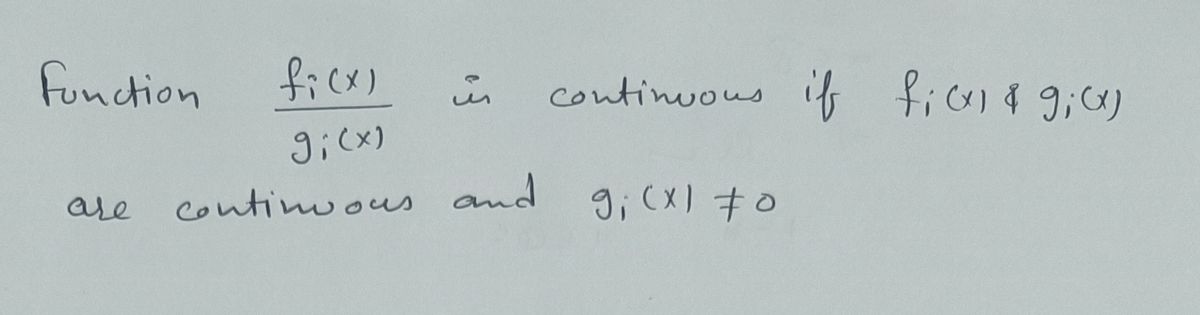 Function fi(x)/gi(x) is continuous if fi(x) & gi(x)
are continuous and gi(x) ≠ 0